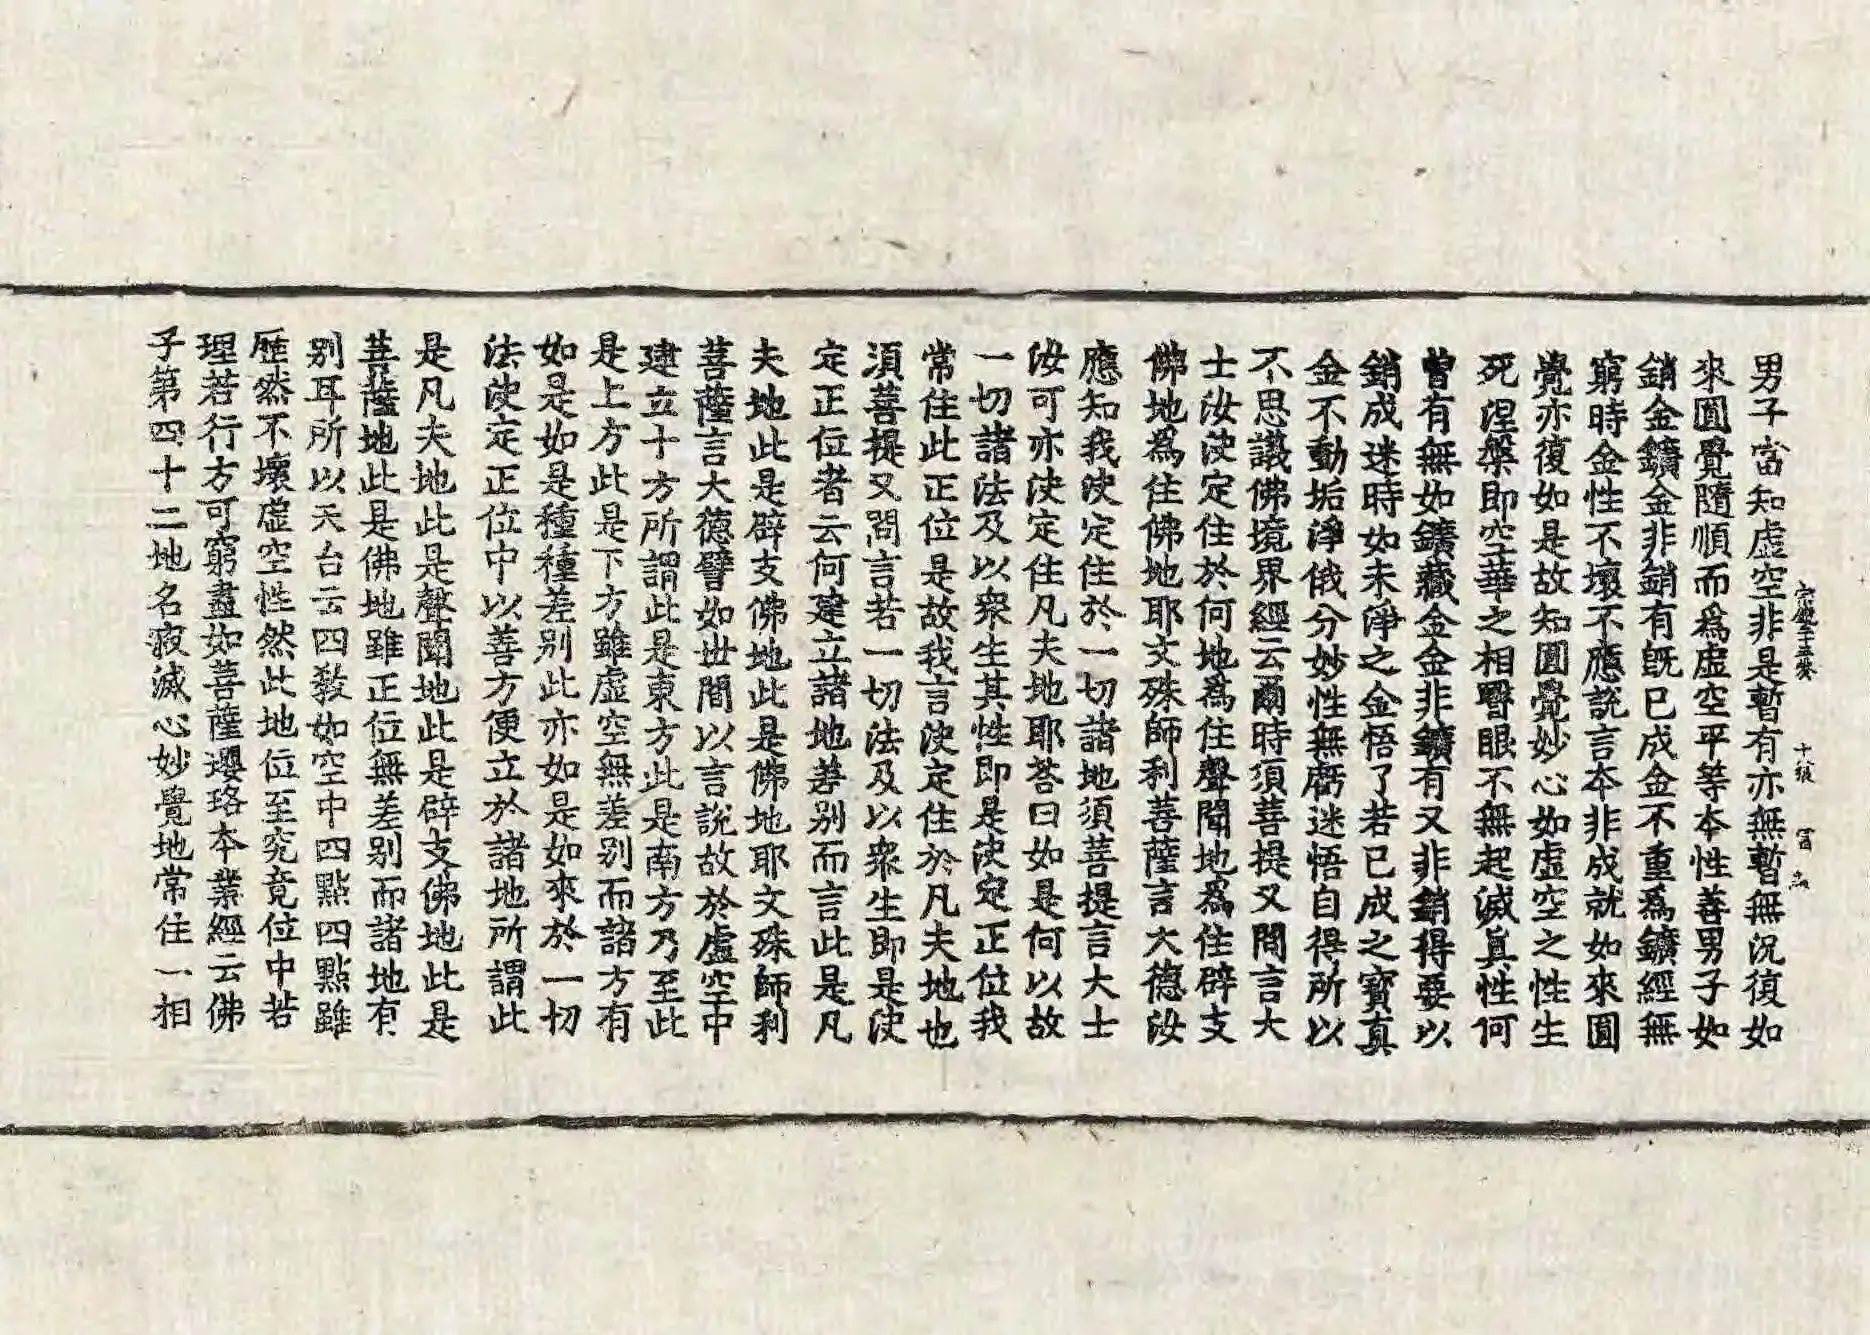 男子當知虛空非是暫有亦無暫無況復如
來圓覺隨順而爲虛空平等本性善男子如
銷金鑛金非銷有旣已成金不重爲鑛經無
窮時金性不壞不應說言本非成就如來圓
覺亦復如是故知圓覺妙心如虛空之性生
死涅槃即空華之相瞖眼不無起滅眞性何
曾有無如鑛藏金金非鑛有又非銷得要以
銷成迷時如未淨之金悟了若已成之寶真
金不動垢淨俄分妙性無虧迷悟自得所以
不思議佛境界經云爾時須菩提又問言大
士汝決定住於何地爲住聲聞地爲住辟支
佛地爲住佛地耶文殊師利菩薩言大德汝
應知我決定住於一切諸地須菩提言大士
汝可亦決定住凡夫地耶荅曰如是何以故
一切諸法及以衆生其性即是決定正位我
常住此正位是故我言決定住於凡夫地也
須菩提又問言若一切法及以衆生即是決
定正位者云何建立諸地差别而言此是凡
夫地此是辟支佛地此是佛地耶文殊師利
菩薩言大德譬如世間以言說故於虛空中
建立十方所謂此是東方此是南方乃至此
是上方此是下方雖虛空無差别而諸方有
如是如是種種差别此亦如是如來於一切
法決定正位中以善方便立於諸地所謂此
是凡夫地此是聲聞地此是辟支佛地此是
菩薩地此是佛地雖正位無差别而諸地有
别耳所以天台云四教如空中四點四點雖
歷然不壞虛空性然此地位至究竟位中若
理若行方可窮盡如菩薩瓔珞本業經云佛
子第四十二地名寂滅心妙覺地常住一相